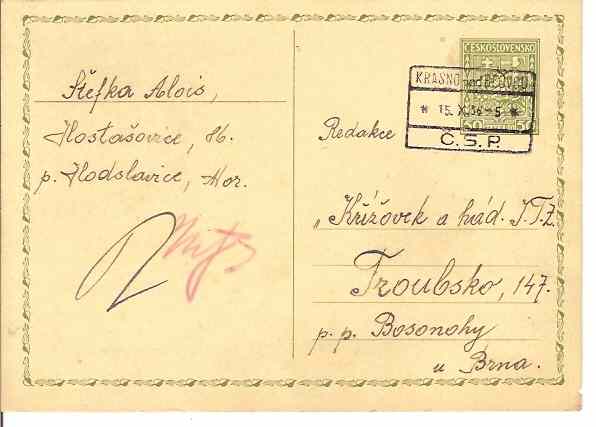 Štefka Alois,
Hostašovice, 76.
p. Hodslavice, Mor.
ČESKOSLOVENSKO
KRASNO nad BEČVOU
* 15.X.36-5 *
Č.S.P.
50 50
Redakce
„Křížovek a hád. J.T.Z.
Troubsko, 147.
p. p. Bosonohy
u Brna.